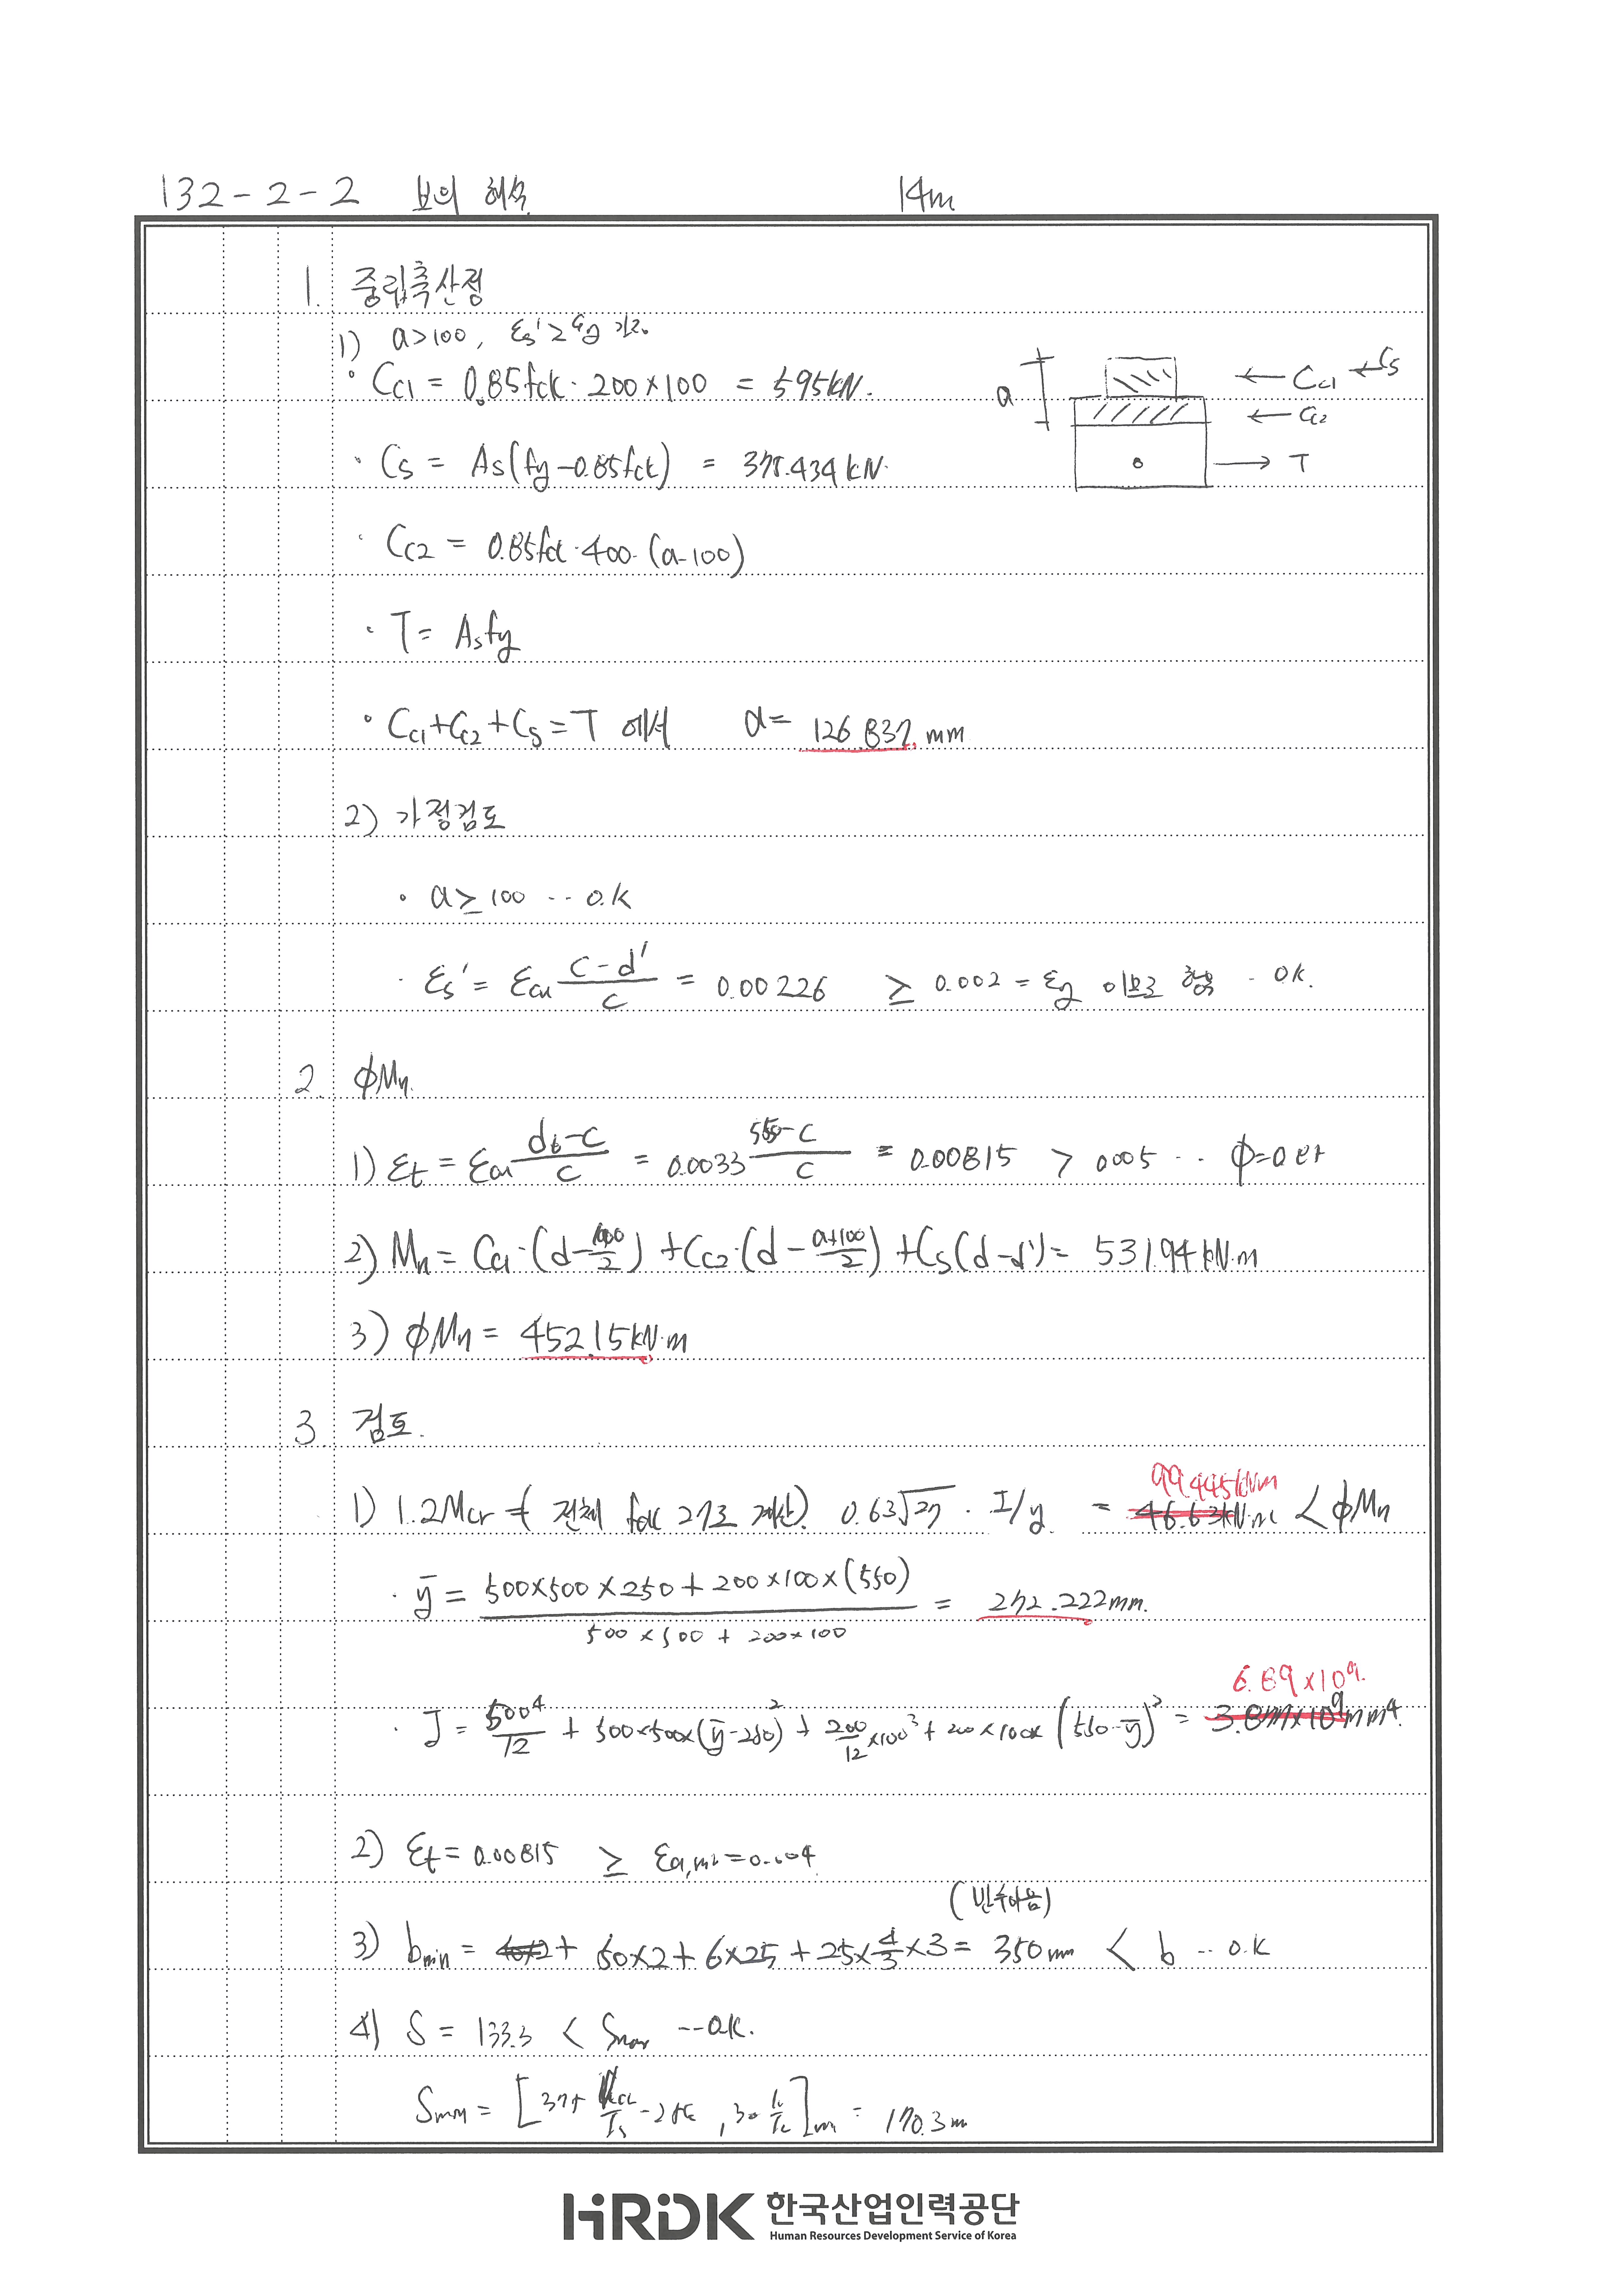 132-2-2 보의 해석 14m
1. 중립축산정
1) a>100, εs'≥εy 가정
· Cc1 = 0.85fck·200×100 = 595kN.
a
Cc1 Cs
Cc2
T
· Cs = As(fy-0.85fck) = 375.434kN.
· Cc2 = 0.85fck·400·(a-100)
· T= Asfy
· Cc1+Cc2+Cs=T 에서 a= 126.837mm
2) 가정검토
· a≥100 ‥ O.K
· εs' = εcu (c-d')/c = 0.00226 ≥ 0.002 = εy 이므로 항복 ‥ OK.
2. ϕMn
1) εt = εcu (dt-c)/c = 0.0033 (550-c)/c = 0.00815 > 0.005 ‥ ϕ=0.85
2) Mn = Cc1·(d-100/2) + Cc2·(d-(a+100)/2) + Cs(d-d') = 531.94kN·m
3) ϕMn = 452.15kN·m
3. 검토.
99.445kNm
1) 1.2Mcr = (전체 fck 27로 계산) 0.63√27 · I/y = 46.63kN·m < ϕMn
· ȳ = (500×500×250+200×100×(550))/(500×500+200×100) = 272.222mm.
6.89×10⁹
· I = 500⁴/12 + 500×500×(ȳ-250)² + 200/12×100³ + 200×100×(550-ȳ)² = mm⁴.
2) εt = 0.00815 ≥ εa,min=0.004
(반수아음)
3) bmin = 40×2+ 50×2+6×25+25×4/3×3 = 350mm < b ‥ O.K
4) S = 133.3 < Smax ‥O.K.
= 170.3m
HRDK 한국산업인력공단
Human Resources Development Service of Korea